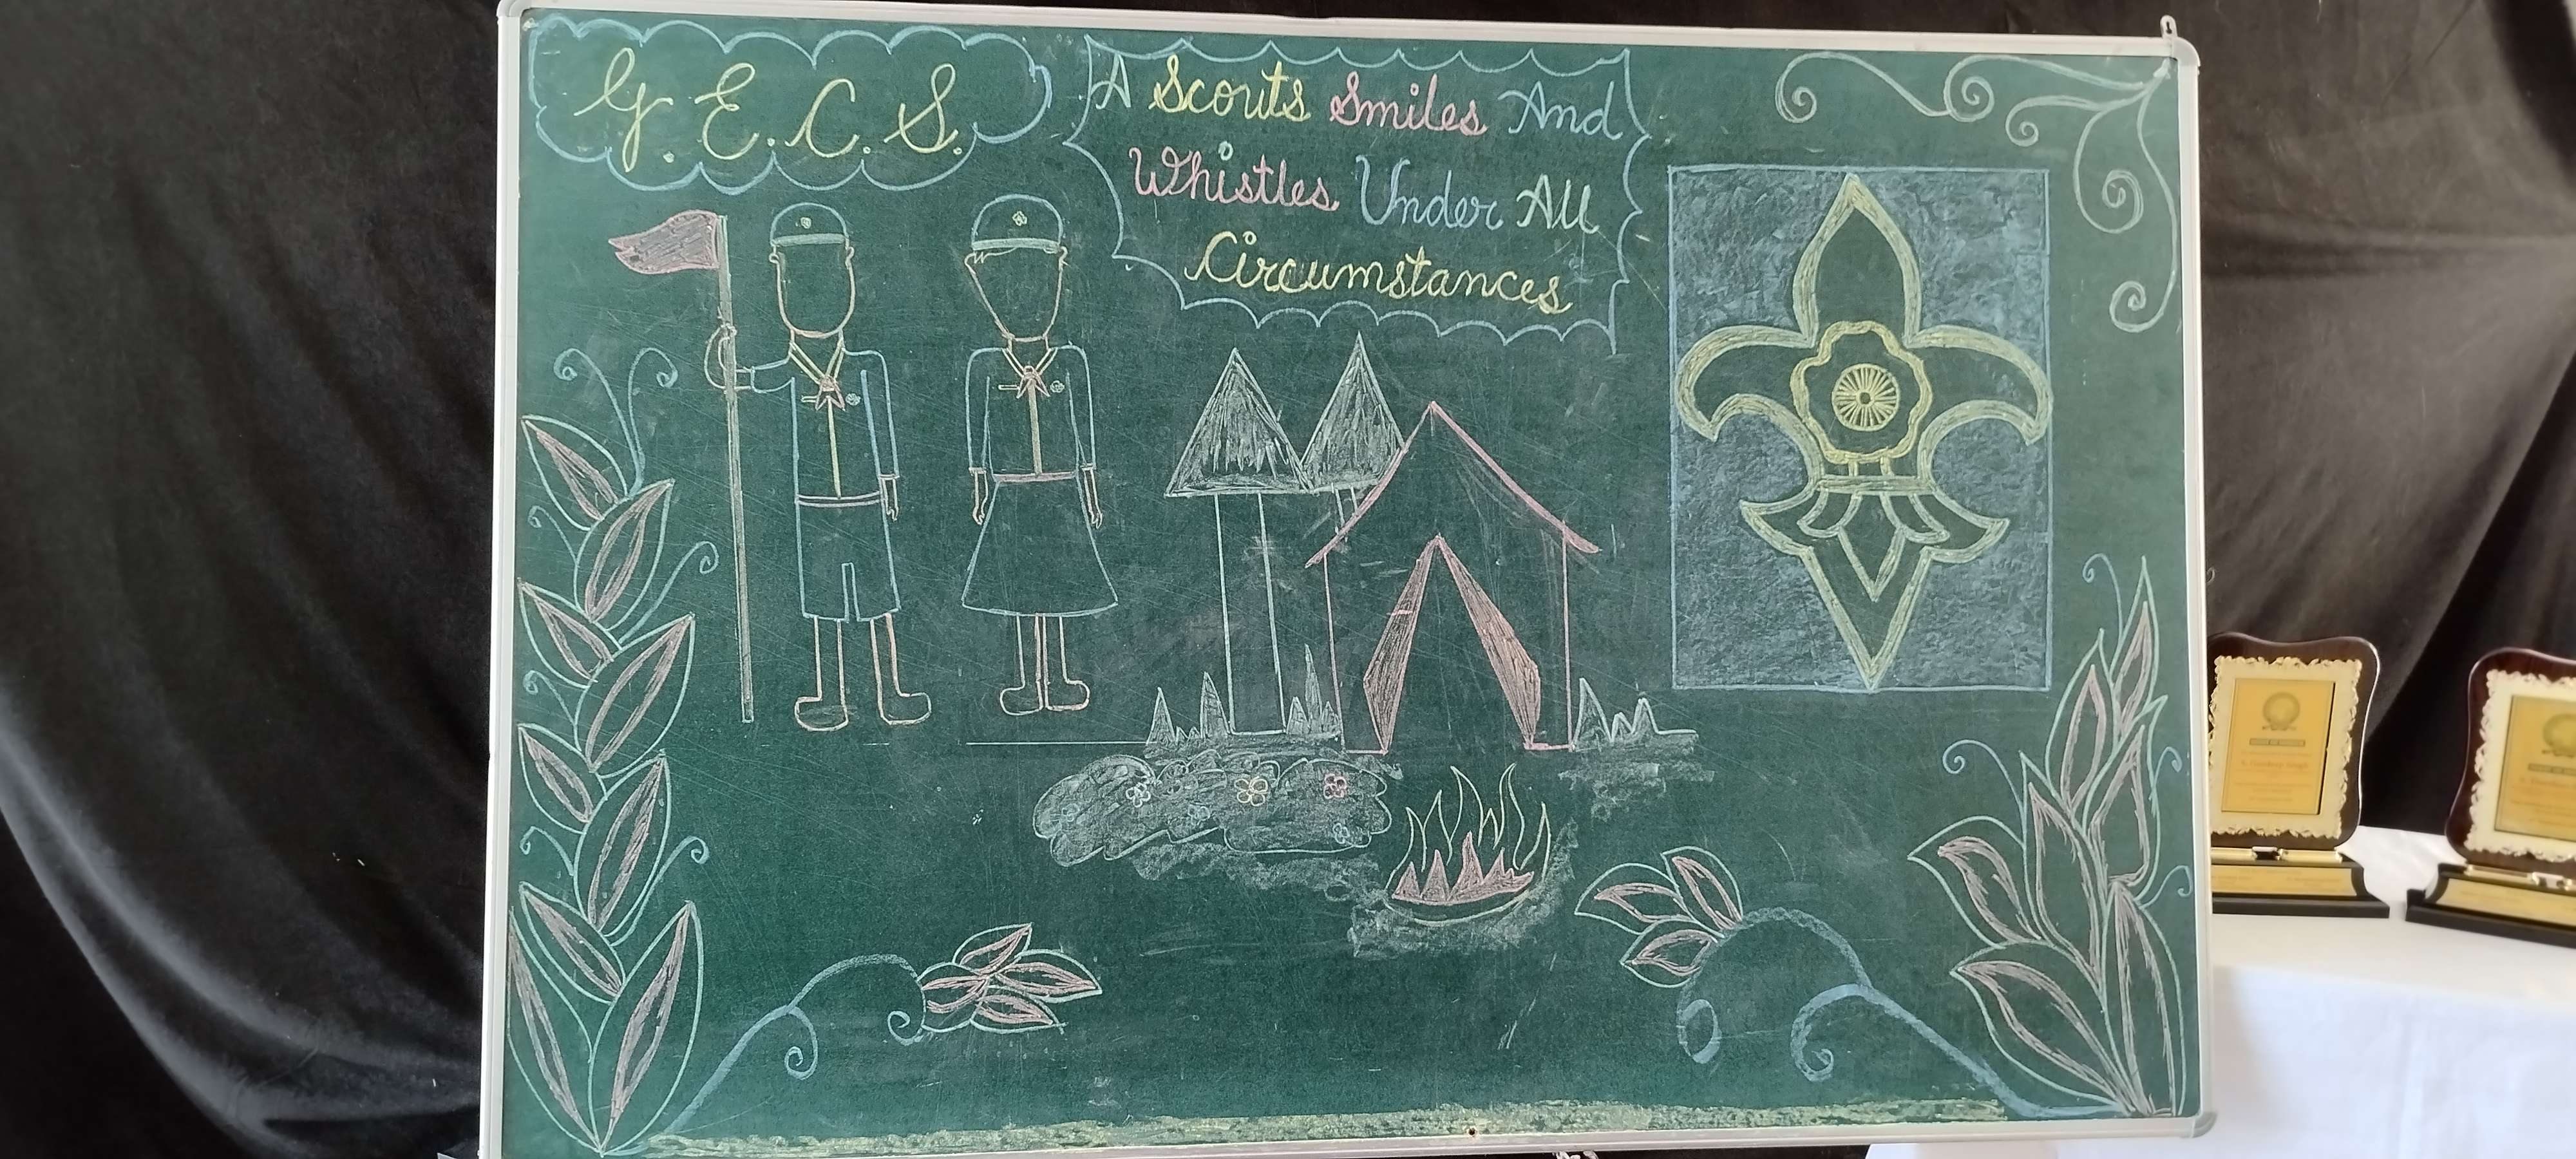 G.E.C.S.
A Scouts Smiles And
Whistles Under All
Circumstances